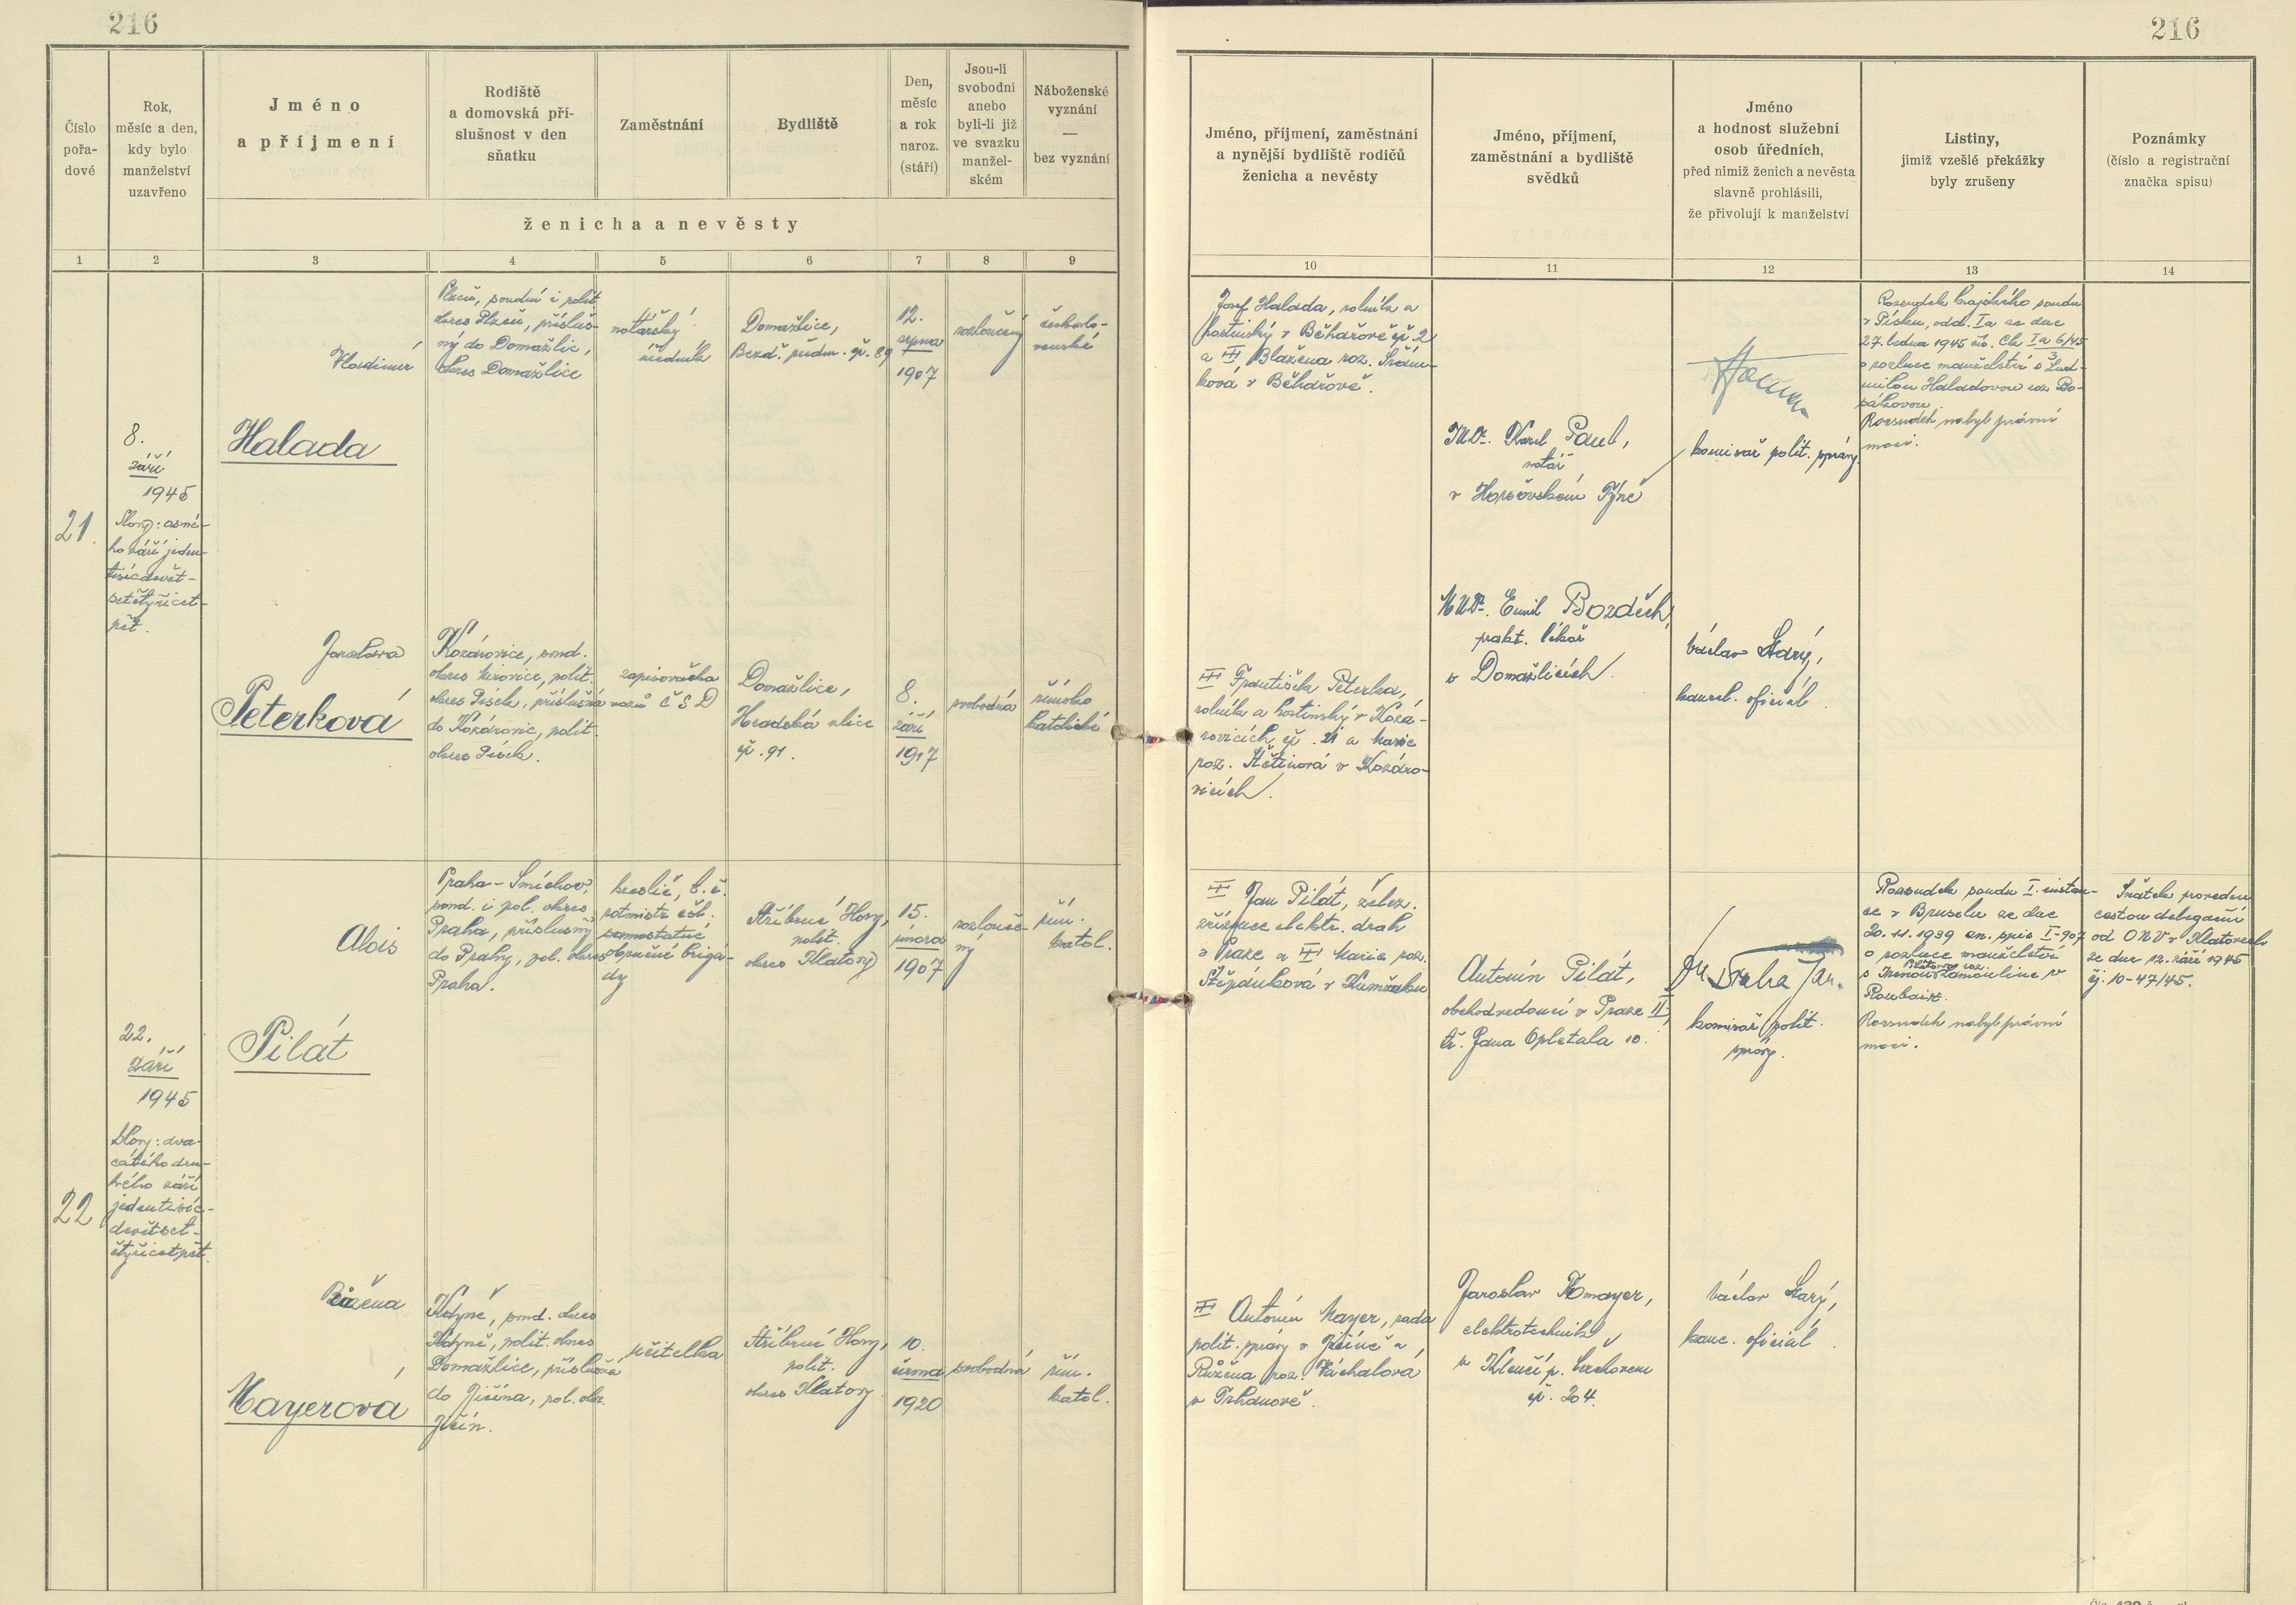 216
216
Číslo
pořa-
dové
Rok,
měsíc a den,
kdy bylo
manželství
uzavřeno
Jméno
a příjmení
Rodiště
a domovská pří-
slušnost v den
sňatku
Zaměstnání
Bydliště
Den,
měsíc
a rok
naroz.
(stáří)
Jsou-li
svobodni
anebo
byli-li již
ve svazku
manžel-
ském
Náboženské
vyznání
—
bez vyznání
ženicha a nevěsty
Jméno, příjmení, zaměstnání
a nynější bydliště rodičů
ženicha a nevěsty
Jméno, příjmení,
zaměstnání a bydliště
svědků
Jméno
a hodnost služební
osob úředních,
před nimiž ženich a nevěsta
slavně prohlásili,
že přivolují k manželství
Listiny,
jimiž vzešlé překážky
byly zrušeny
Poznámky
(číslo a registrační
značka spisu)
1 2 3 4 5 6 7 8 9
10 11 12 13 14
21.
8.
září
1945
Slovy: osmé-
ho září jeden-
tisícdevět-
setčtyřicet-
pět.
Vladimír
Halada
Plzeň, soudní i polit.
okres Plzeň, přísluš-
ný do Domažlic,
okres Domažlice
notářský
úředník
Domažlice,
Bezd. předm. čp. 89
12.
srpna
1907
rozloučený
českoslo-
venské
Josef Halada, rolník a
hostinský v Běhařově čp. 2
a Blažena roz.
ková v Běhařově.
JUDr. Karel Paul,
notář
v Horšovském Týně
komisař polit. správy.
Rozsudek krajského soudu
v Písku, odd. Ia ze dne
27. ledna 1945 čís. Ck Ia 6/45
o rozluce manželství s Lud-
milou Haladovou roz.
Rozsudek nabyl právní
moci.
Jaroslava
Peterková
Kozárovice, soud.
okres Mirovice, polit.
okres Písek, příslušná
do Kozárovic, polit.
okres Písek.
zapisovačka
vozů ČSD
Domažlice,
Hradská ulice
čp. 91.
8.
září
1917
svobodná
římsko
katolické
František Peterka,
rolník a hostinský v Kozá-
rovicích čp. 21 a Marie
roz. Štětinová v Kozáro-
vicích.
MUDr. Emil Bozděch,
prakt. lékař
v Domažlicích.
Václav Starý,
kancel. oficiál.
22
22.
září
1945
Slovy: dva-
cátého dru-
hého září
jedentisíc-
devětset-
čtyřicetpět.
Alois
Pilát
Praha-Smíchov,
soud. i pol. okres
Praha, příslušný
do Prahy, pol. okres
Praha.
kreslič, t. č.
rotmistr čsl.
samostatné
obrněné brigá-
dy
Stříbrné Hory,
polit.
okres Klatovy
15.
února
1907
rozlouče-
ný
řím.
katol.
Jan Pilát, želez.
zřízenec elektr. drah
v Praze a Marie roz.
Štěpánková v
Antonín Pilát,
obchodvedoucí v Praze II,
tř. Jana Opletala 10.
komisař polit.
správy.
Rozsudek soudu I. instan-
ce v Bruselu ze dne
20.11.1939 en. spis I-907
o rozluce manželství
Roubaix.
Rozsudek nabyl právní
moci.
Sňatek proveden
cestou delegační
od ONV v Klatovech
ze dne 12. září 1945
čj. 10-47/45.
Růžena
Mayerová
Kdyně, soud. okres
Kdyně, polit. okres
Domažlice, příslušná
do Jičína, pol. okr.
Jičín.
učitelka
Stříbrné Hory,
polit.
okres Klatovy.
10.
června
1920
svobodná
řím.
katol.
Antonín Mayer, rada
polit. správy v Jičíně a
Růžena roz. Váchalová
v Trhanově.
Jaroslav Kmayer,
elektrotechnik
v Klenčí p. Čerchovem
čp. 204.
Václav Starý,
kanc. oficiál.